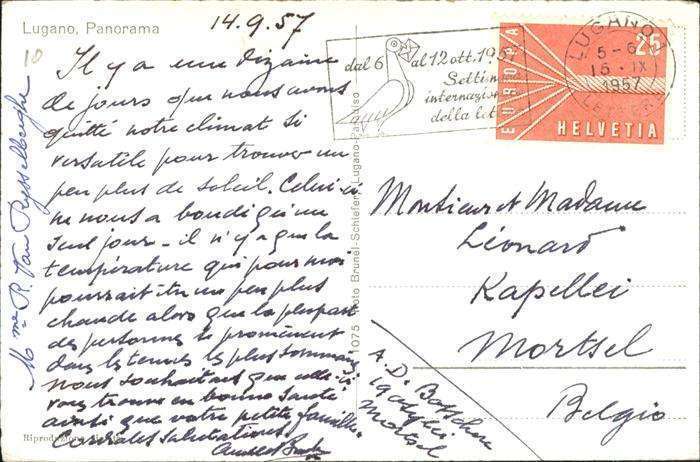 Lugano, Panorama
14.9.57
10
Il y a une dizaine
de jours que nous avons
quitté notre climat si
versatile pour trouver un
peu plus de soleil. Celui-ci
ne nous a boudé qu'un
seul jour - il n'y a que la
température qui pour moi
pourrait être un peu plus
chaude alors que la plupart
des personnes se promènent
dans les tenues les plus sommaires
nous souhaitons que celle-ci
vous trouve en bonne santé
ainsi que votre petite famille
Cordiales Salutations
Mme R. Van Rysselberghe
Riproduzione
1075 Foto Brunel-Schiefer, Lugano-Paradiso
dal 6 al 12 ott. 1957
Settim
internazio
della let
LUGANO 1
5-6
15.IX
1957
LETTERE
EUROPA
25
HELVETIA
Monsieur et Madame
Léonard
Kapellei
Mortsel
Belgio
A. De Bosschere
19
Mortsel